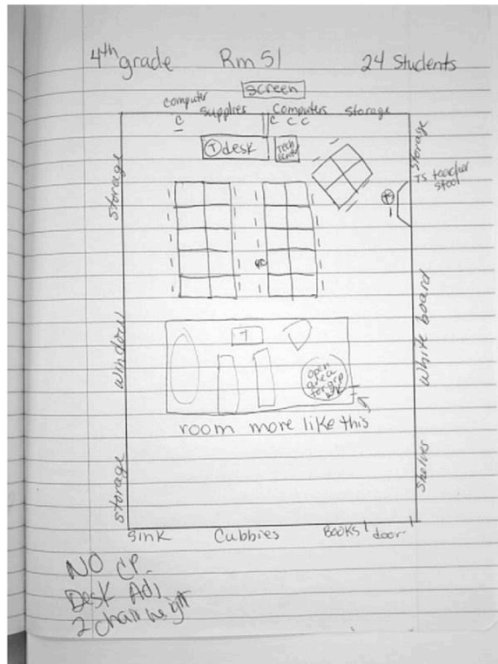 4th grade Rm 51 24 Students
screen
computer supplies Computers storage
C C C C
T desk Tech
storage
storage
TS teacher stool
T
window
white board
T
open area for grp
room more like this
storage
shelves
sink Cubbies Books door
NO CP.
Desk Adj
2 chair height